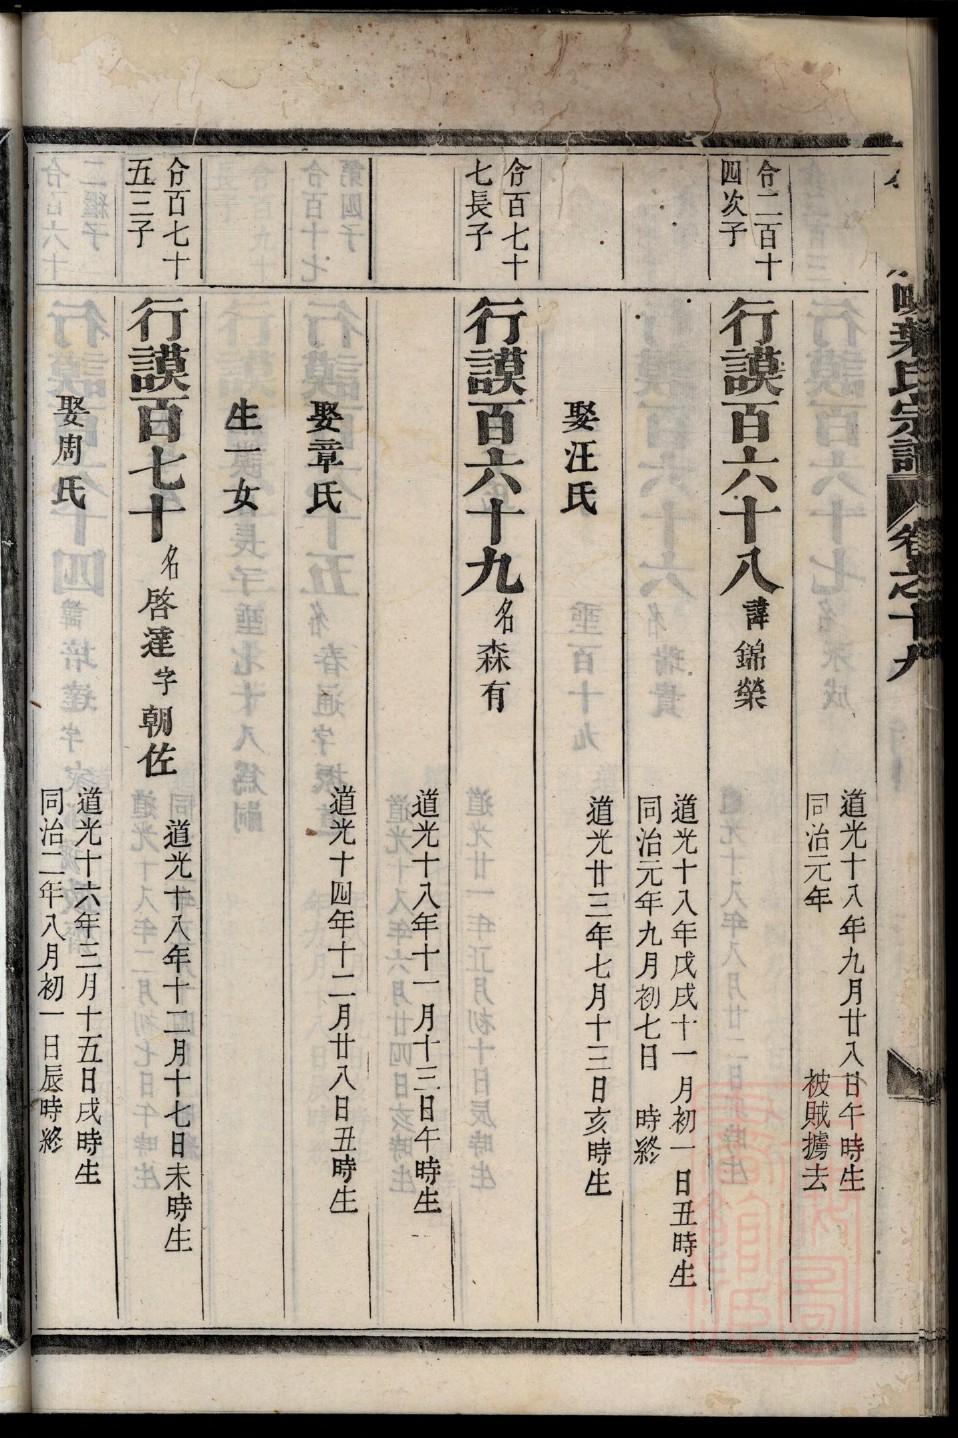 葉氏宗譜 卷之十九
道光十八年九月廿八日午時生
同治元年 被賊擄去
合二百十
四次子
行謨百六十八 諱錦榮
道光十八年戊戌十一月初一日丑時生
同治元年九月初七日 時終
娶汪氏
道光廿三年七月十三日亥時生
合百七十
七長子
行謨百六十九 名森有
道光十八年十一月十三日午時生
娶章氏
道光十四年十二月廿八日丑時生
生一女
合百七十
五三子
行謨百七十 名啓達字朝佐
道光十八年十二月十七日未時生
娶周氏
道光十六年三月十五日戌時生
同治二年八月初一日辰時終